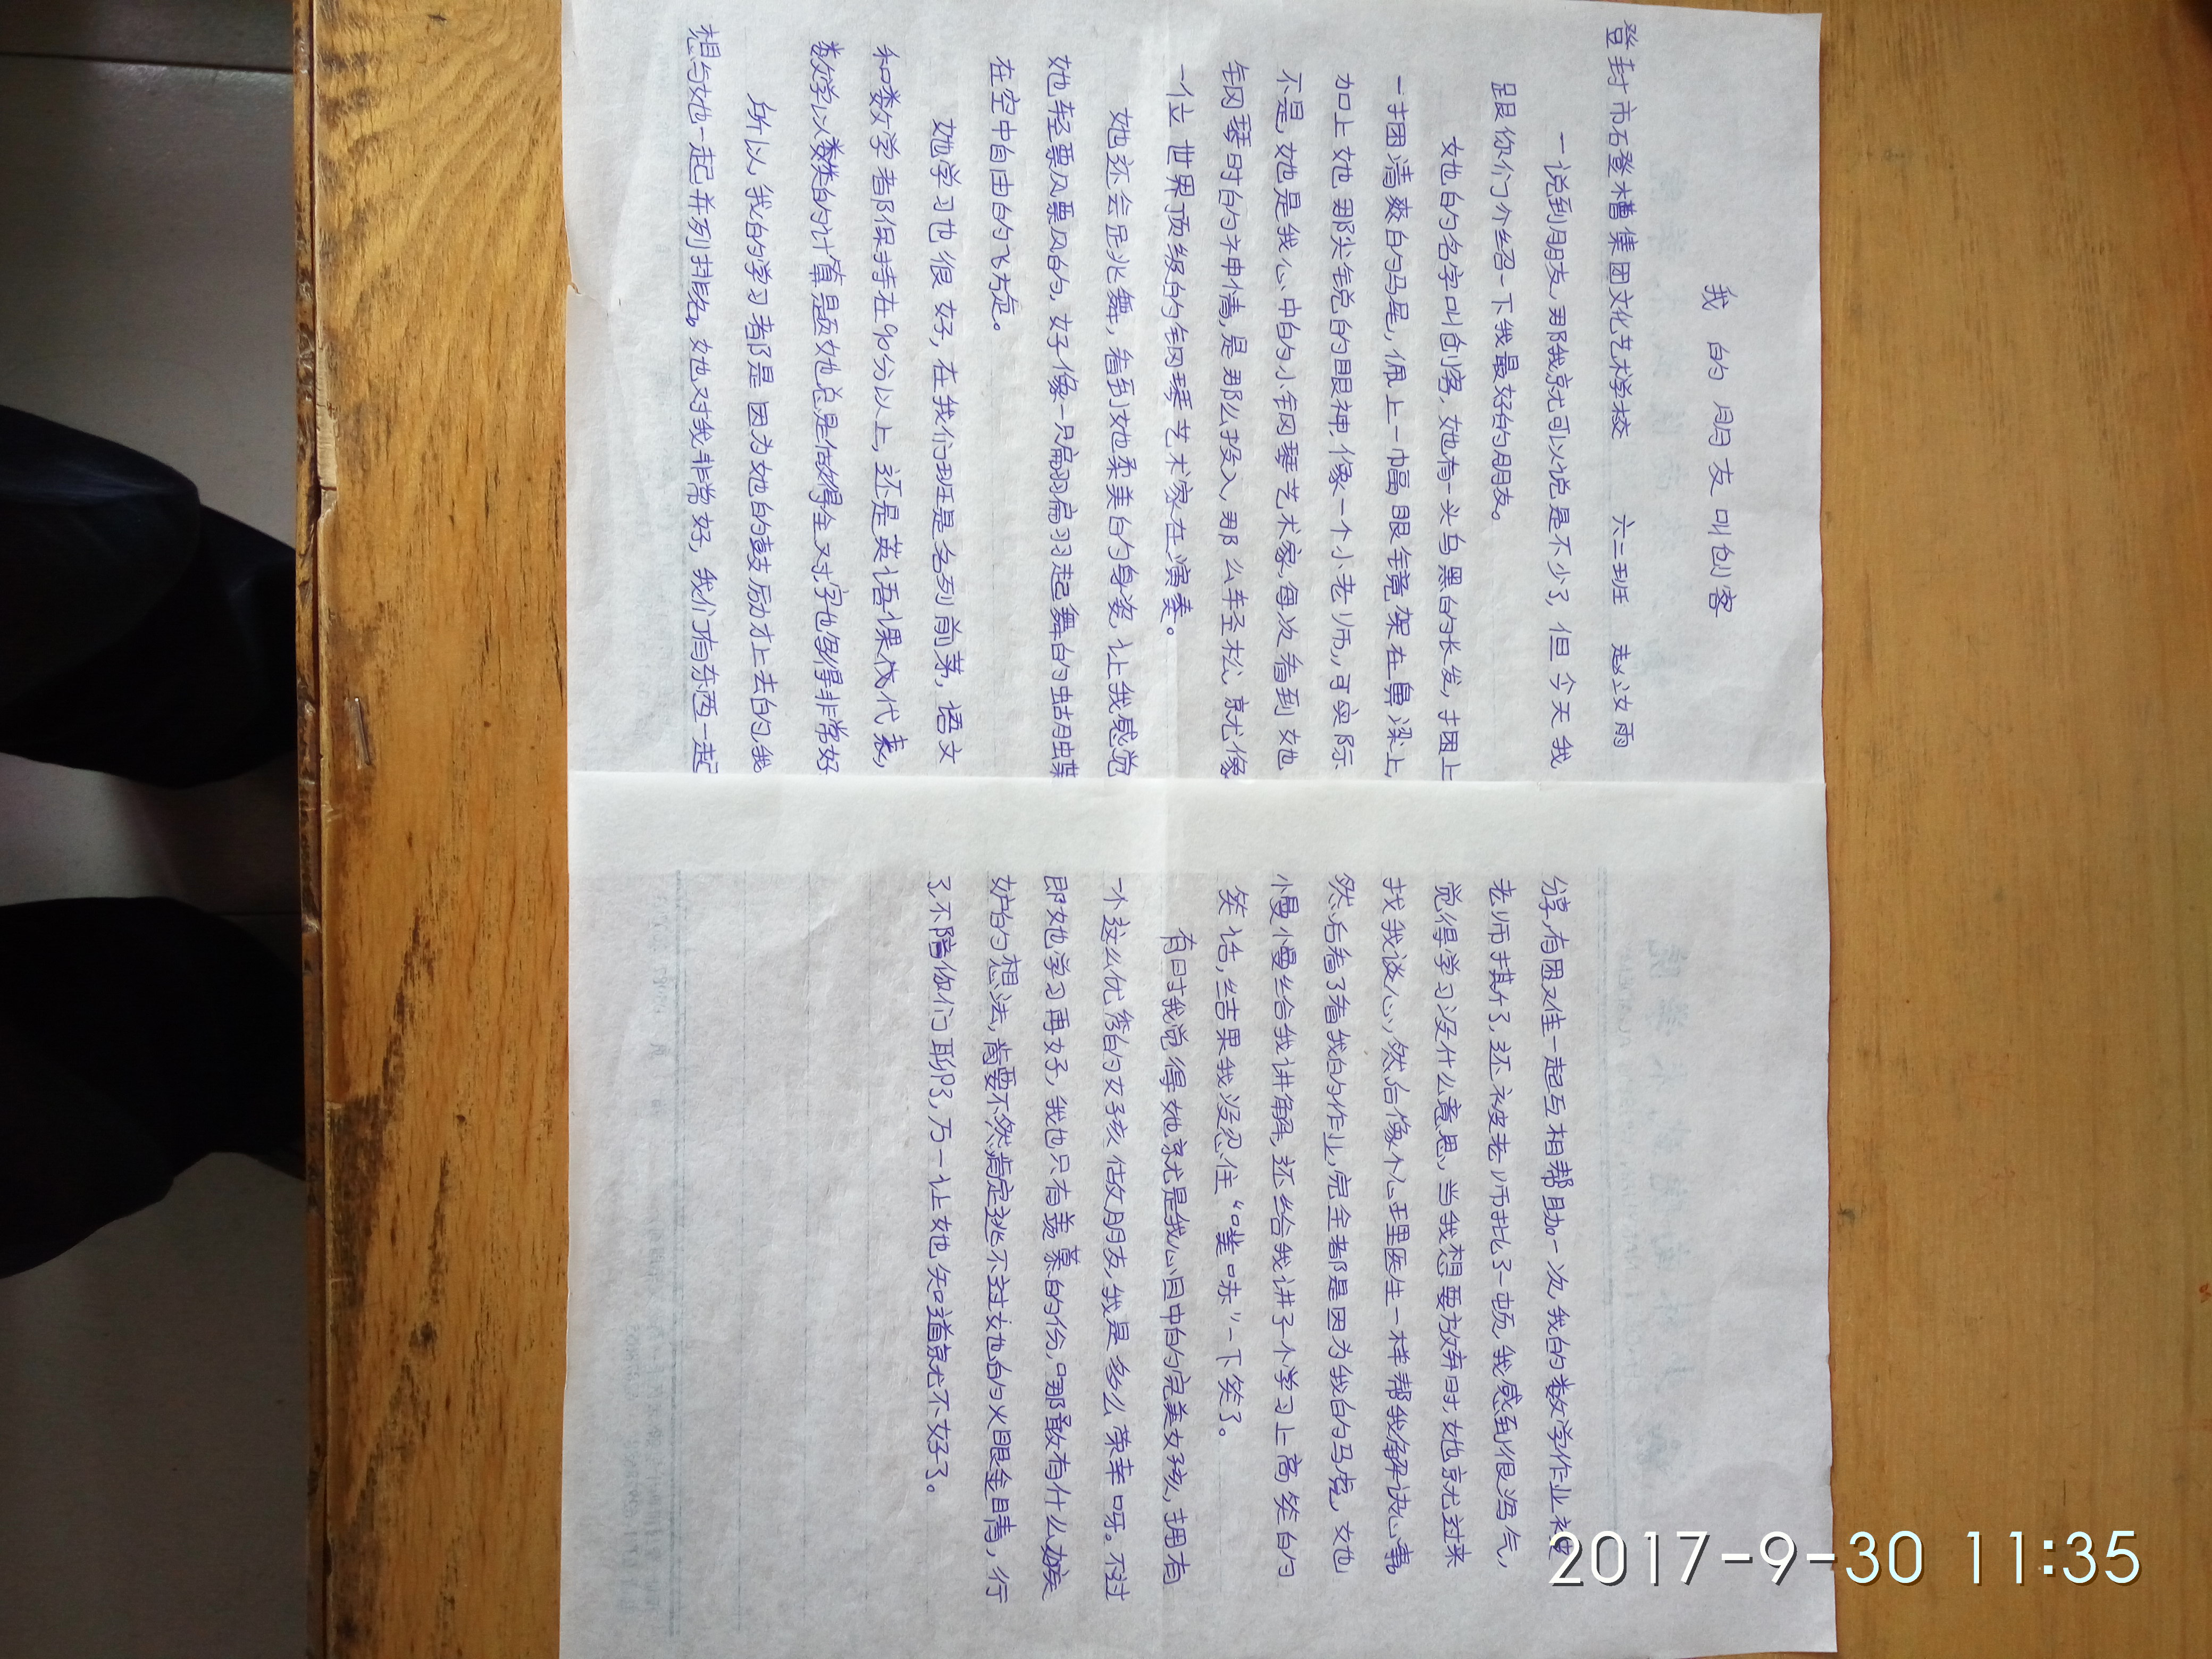 我的朋友叫创客
登封市石登槽集团文化艺术学校 六二班 赵汝雨
一说到朋友,那我就可以说是不少了,但今天我
跟你们介绍一下我最好的朋友。
她的名字叫创客,她有一头乌黑的长发,捆上
一捆清爽的马尾,佩上一幅眼镜架在鼻梁上,
加上她那尖锐的眼神,像一个小老师,可实际
不是,她是我心中的小钢琴艺术家,每次看到她
钢琴时的神情,是那么投入,那么轻松,就像
一位世界顶级的钢琴艺术家在演奏。
她还会足兆舞,看到她柔美的身姿,让我感觉
她轻飘飘的,好像一只翩翩起舞的蝴蝶
在空中自由的飞翔。
她学习也很好,在我们班是名列前茅,语文
和数学都保持在90分以上,还是英语课代表,
数学以类的计算题她总是做得全对,字也写得非常好
所以,我的学习都是因为她的鼓励才上去的,我
想与她一起并列排名。她对我非常好,我们有东西一起
分享,有困难一起互相帮助。一次,我的数学作业被
老师撕了,还被老师批了一顿,我感到很泄气,
觉得学习没什么意思,当我想要放弃时,她就过来
找我谈心,然后像个心理医生一样帮我解决心事,
然后看了看我的作业,完全都是因为我的马虎,她
慢慢给我讲解,还给我讲了个学习上高笑的
笑话,结果我没忍住“噗哧”一下笑了。
有时我觉得她就是我心目中的完美女孩,拥有
一个这么优秀的女孩做朋友,我是多么荣幸呀。不过
即她学习再好,我也只有羡慕的份,哪敢有什么嫉
妒的想法,要不然肯定逃不过她的火眼金睛,行
了,不陪你们聊了,万一让她知道就不好了。
2017-9-30 11:35